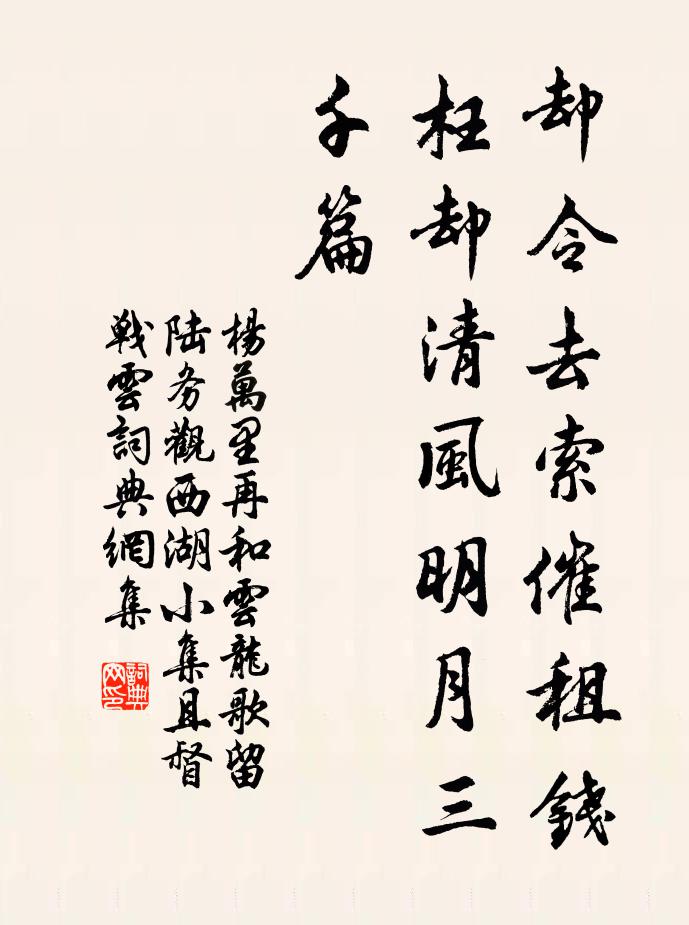 却令去索催租錢
枉却清風明月三
千篇
楊萬里再和雲龍歌留
陆务觀西湖小集且督
戰雲詞典網集
詞典
网印